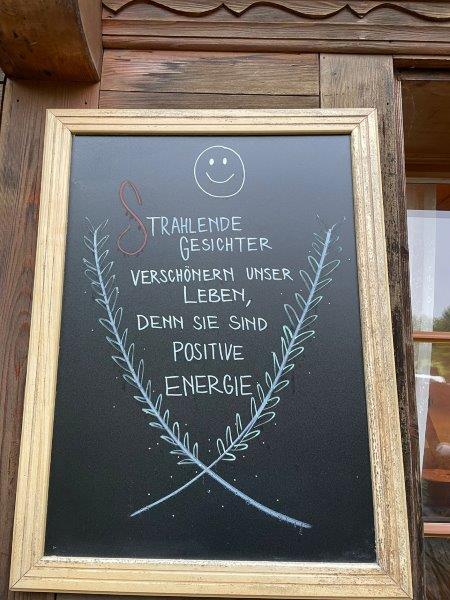 STRAHLENDE
GESICHTER
VERSCHÖNERN UNSER
LEBEN,
DENN SIE SIND
POSITIVE
ENERGIE